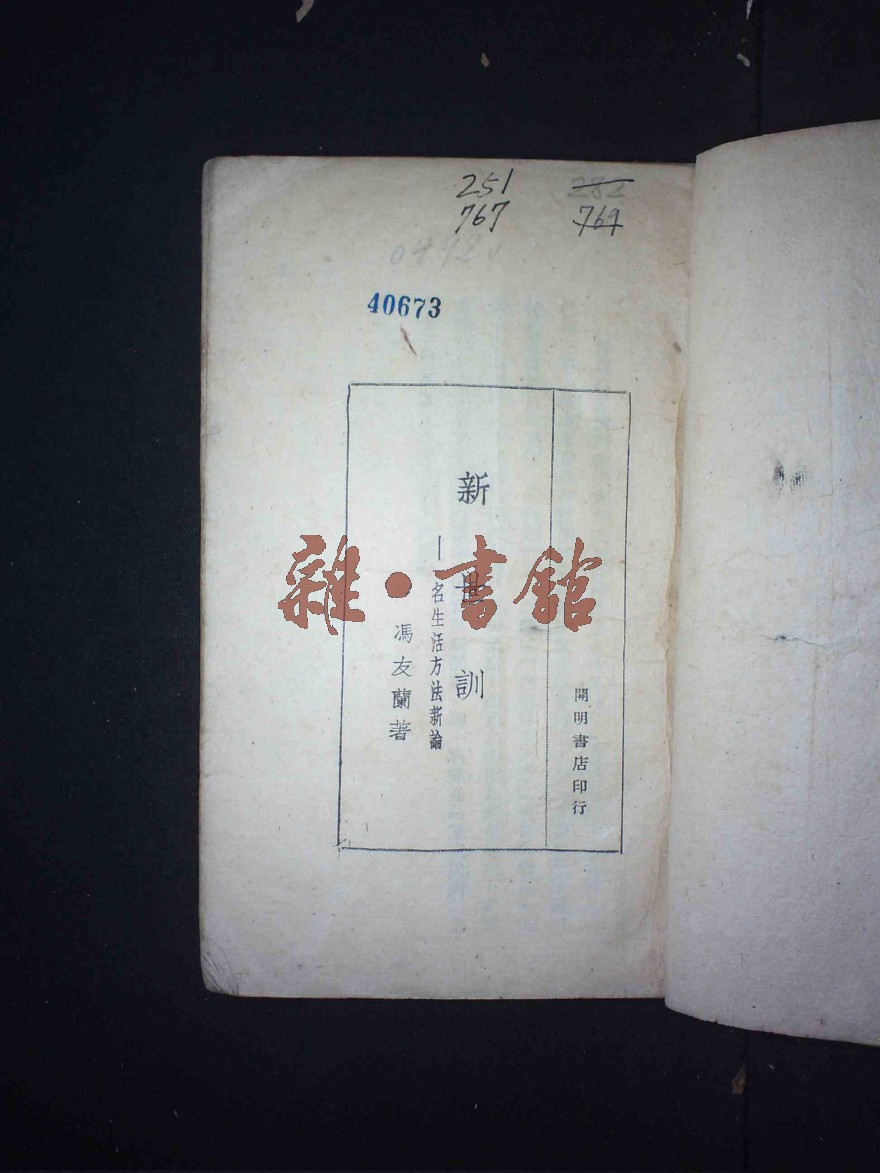 251
767
769
40673
新世訓
一名生活方法新論
馮友蘭著
開明書店印行
雜·書館